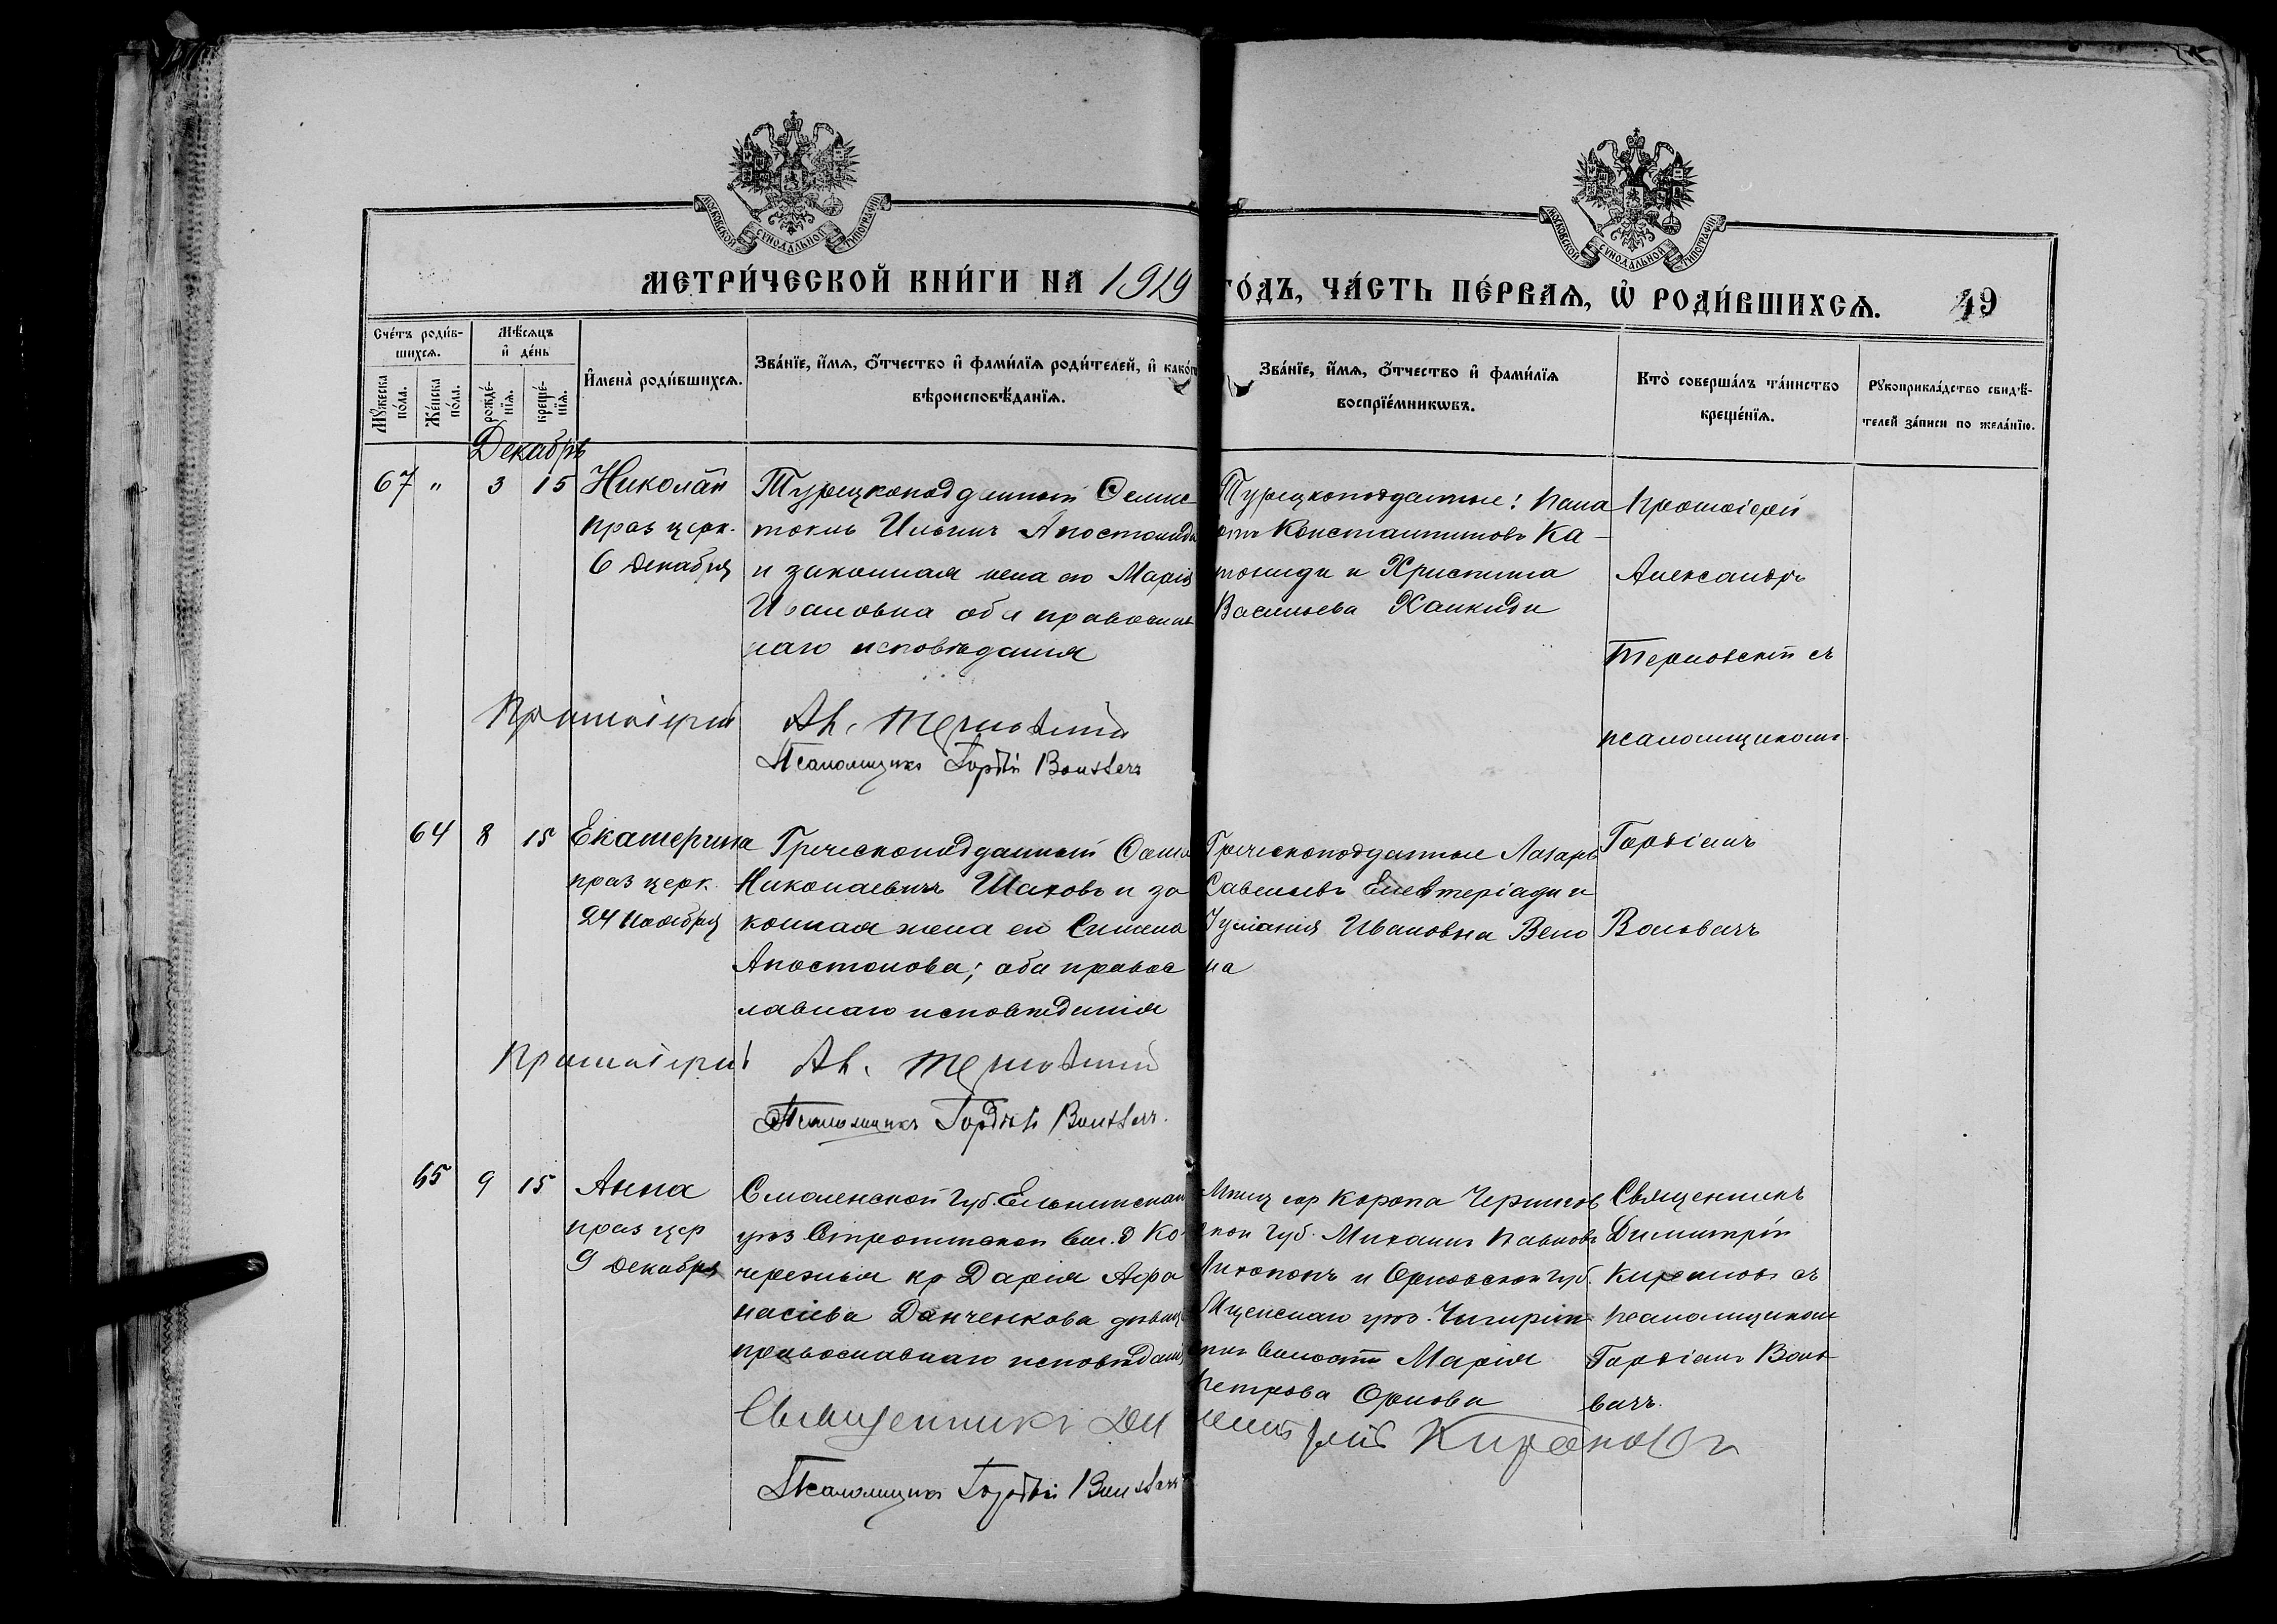 МОСКОВСКОЙ СѴНОДАЛЬНОЙ ТИПОГРАФІИ
МОСКОВСКОЙ СѴНОДАЛЬНОЙ ТИПОГРАФІИ
МЕТРИ́ЧЕСКОЙ КНИ́ГИ НА 1919 ГО́ДЪ, ЧА́СТЬ ПЕ́РВАѦ, Ѽ РОДИ́ВШИХСѦ. 49
Сче́тъ роди́в-
шихсѧ.
Мꙋ́жеска
по́ла.
Же́нска
по́ла.
Мѣ́сѧцъ
и҆ де́нь
рожде́-
нїѧ.
креще́-
нїѧ.
И҆мена̀ роди́вшихсѧ.
Зва́нїе, и҆́мѧ, ѻ҆́тчество и҆ фами́лїѧ роди́телей, и҆ како́гѡ
вѣроисповѣ́данїѧ.
Зва́нїе, и҆́мѧ, ѻ҆́тчество и҆ фами́лїѧ
воспрїе́мникѡвъ.
Кто̀ соверша́лъ та́инство
креще́нїѧ.
Рꙋкоприкла́дство свидѣ́-
телей за́писи по жела́нїю.
Декабрь
67 " 3 15 Николай
праз церк.
6 декабря
Турецкоподданный Ѳемис
токлъ Ильичъ Апостолиди
и законная жена его Марія
Ивановна оба православ
наго исповѣданія
Турецкоподданные: Пана
іотъ Константиновъ Ка-
и Христина
Васильева
Протоіерей
Александръ
Терновскій съ
псаломщикомъ
Протоіерей Ал. Терновскій
Псаломщикъ Гордій Воловачъ
64 8 15 Екатерина
праз церк.
24 Ноября
Греческоподданный
Николаевичъ Шаховъ и за
конная жена его
Апостолова; оба правос
лавнаго исповѣданія
Греческоподданные Лазарь
Савельевъ Елевтеріади и
Ивановна
на
Гордіемъ
Воловачъ
Протоіерей Ал. Терновскій
Псаломщикъ Гордій Воловачъ.
65 9 15 Анна
праз цер
9 декабря
Смоленской губ. Ельнинскаго
уѣз вол. д Ко-
кр Дарія Афа
насіева Данченкова дѣвица
православнаго исповѣданія
Мѣщ гор Коропа Чернигов
ской губ. Михаилъ Павловъ
и Орловской губ.
Мценскаго уѣз.
волости Марія
Петрова Орлова
Священникъ
Димитрій
Кирановъ съ
псаломщикомъ
Гордіемъ Воло
вачъ.
Священникъ Димитрій Кирановъ
Псаломщикъ Гордій Воловачъ